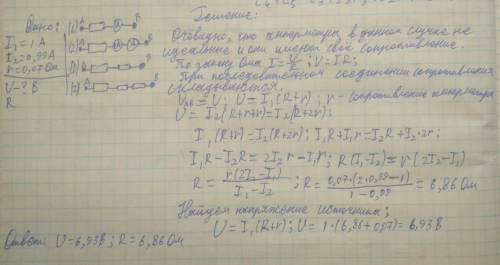 Дано:
I₁ = 1 А
I₂ = 0,99 А
r = 0,07 Ом
U - ? В
R
Решение:
Очевидно, что амперметры в данном случае не
идеальные и они имеют своё сопротивление.
По закону Ома I = U/R; U = IR;
При последовательном соединении сопротивления
складываются.
U_AB = U; U = I₁(R+r); r - сопротивление амперметра
U = I₂(R+r+r) = I₂(R+2r);
I₁(R+r) = I₂(R+2r); I₁R + I₁r = I₂R + I₂·2r;
I₁R - I₂R = 2I₂r - I₁r; R(I₁-I₂) = r(2I₂-I₁)
R = r(2I₂-I₁)/(I₁-I₂); R = 0,07·(2·0,99-1)/(1-0,99) = 6,86 Ом
Найдем напряжение источника;
U = I₁(R+r); U = 1·(6,86+0,07) = 6,93 В
Ответ: U = 6,93 В; R = 6,86 Ом